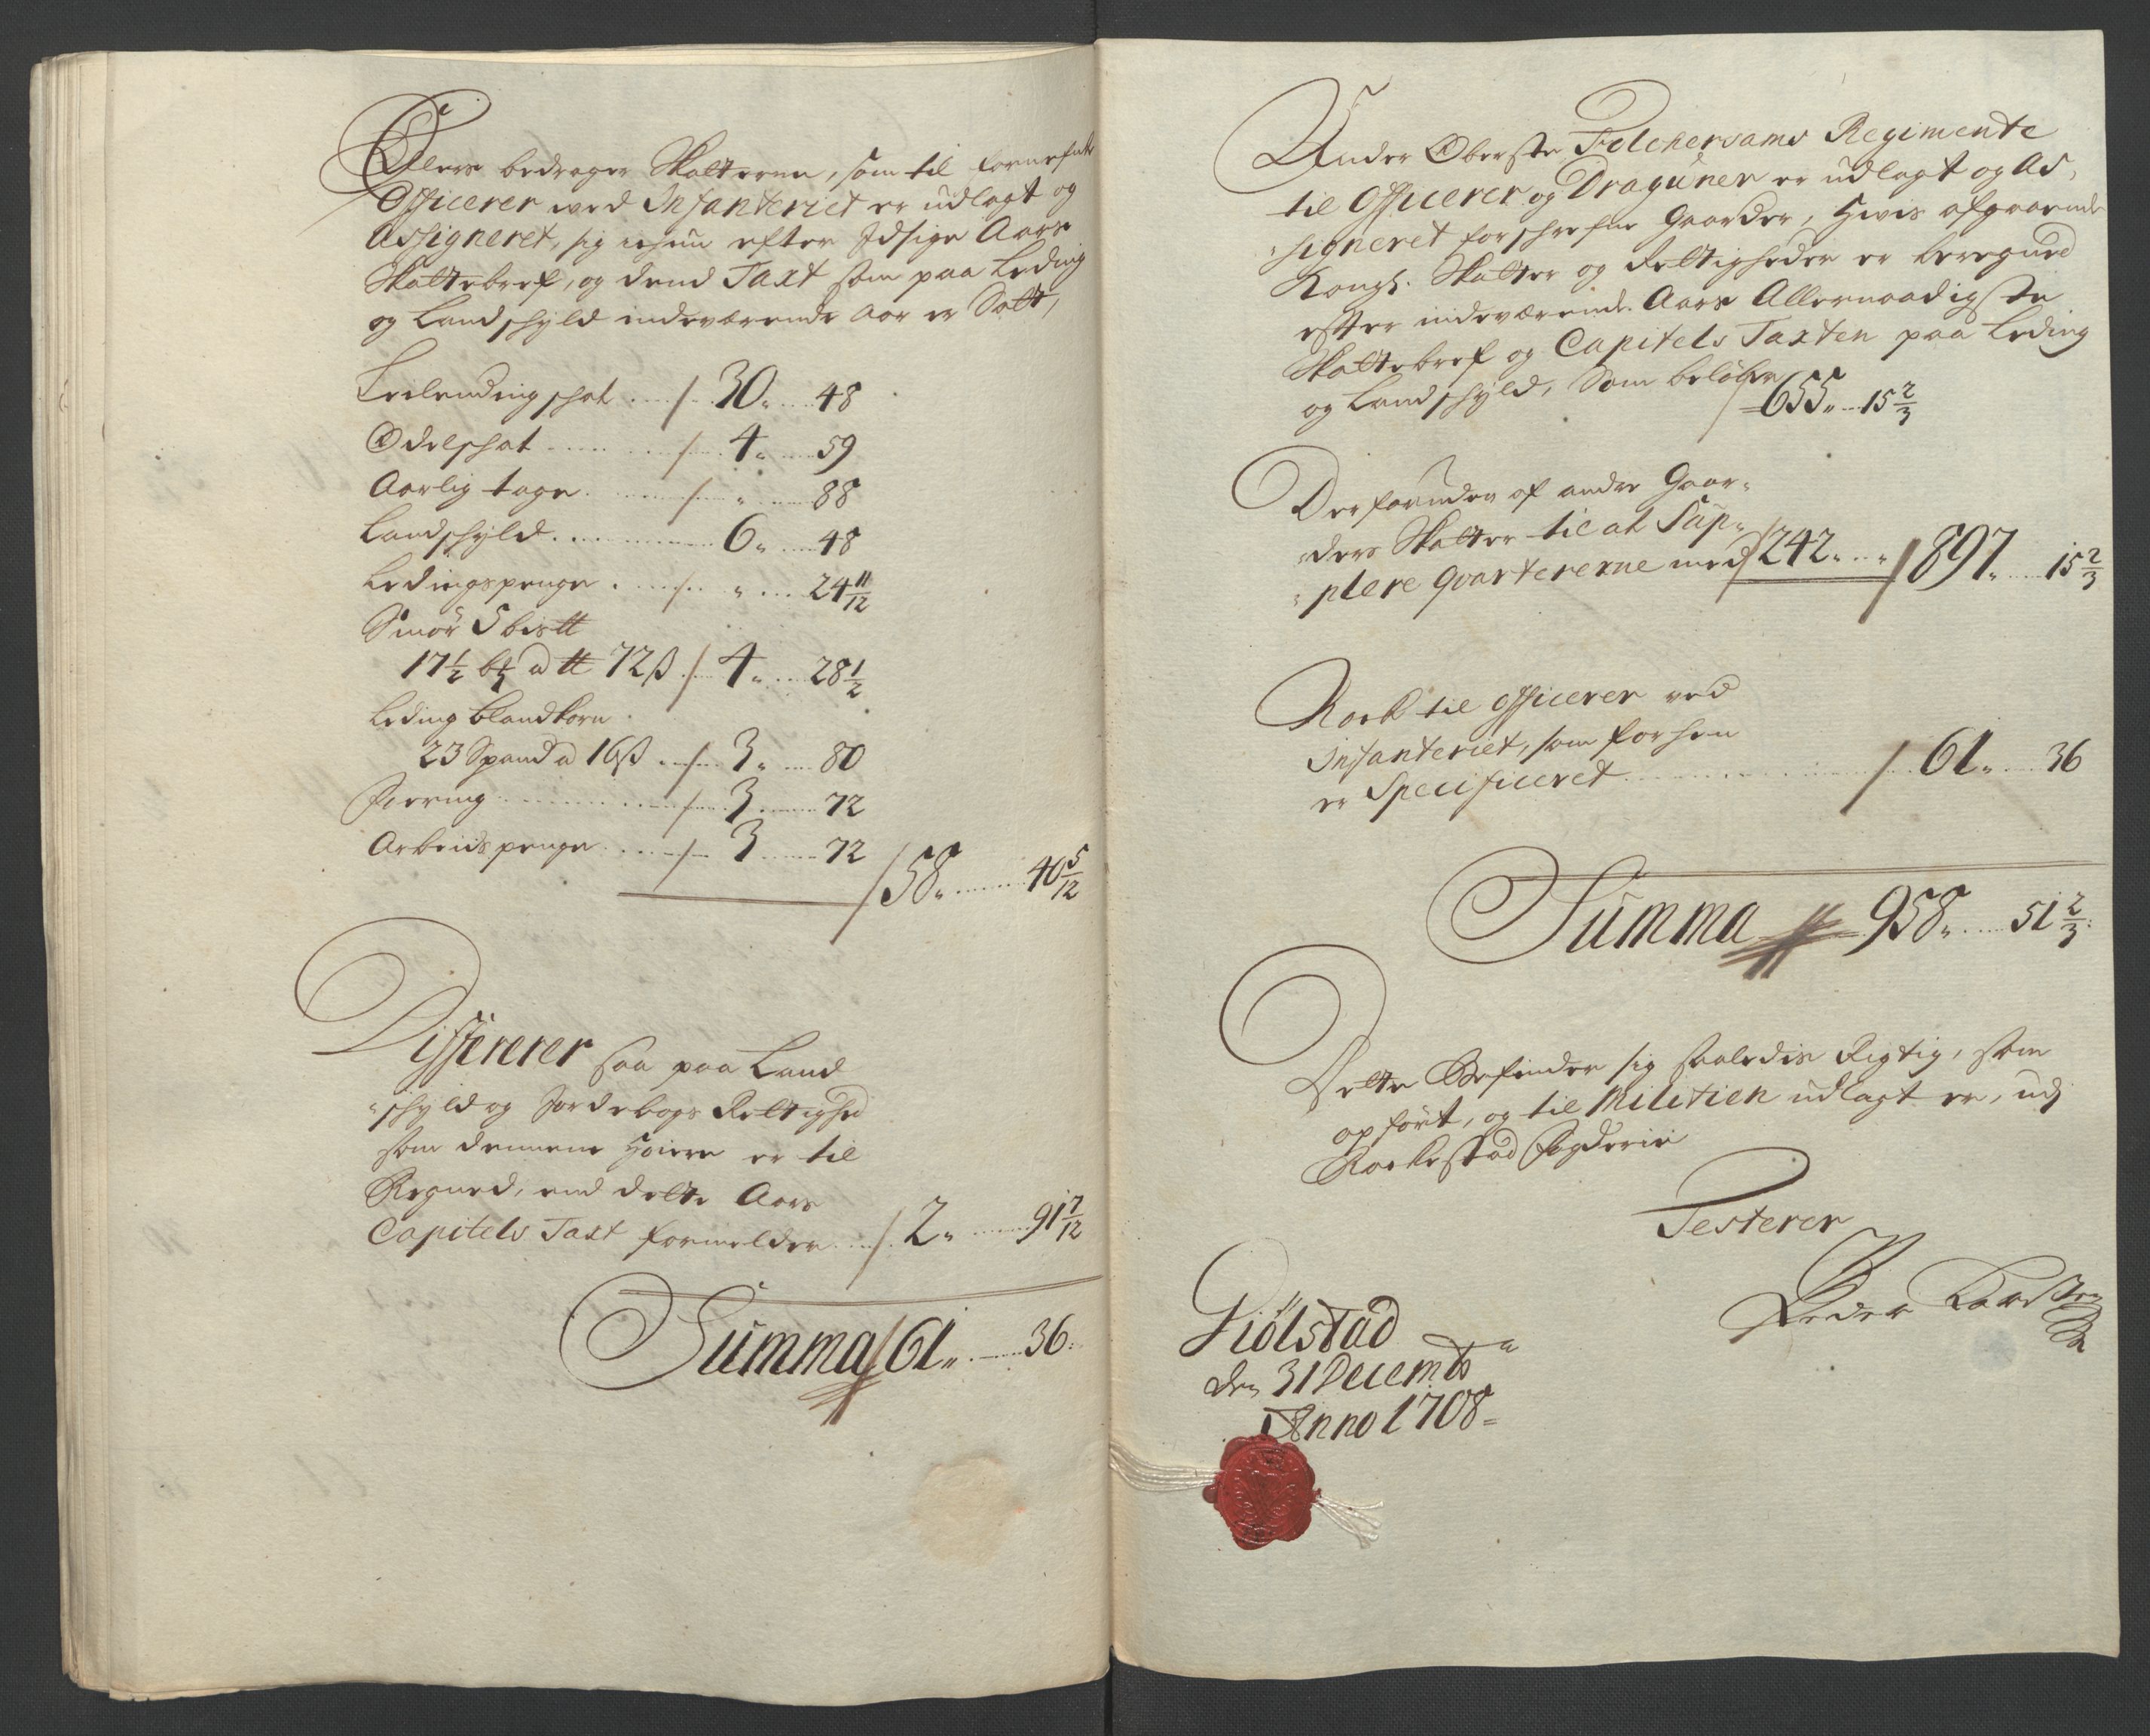 Ellers bedrager Skatterne, som til fornefnte
Officerer ved Infanteriet er udlagt og
Assigneret, sig efter Idsige Aars
Skattebref, og dend Taxt som paa Leding
og Landschyld indeværende Aar er Satt,
Leilendingschat ... / 30 „ 48
Odelschat ... / 4 „ 59
Aarlig tage ... / „ 88
Landschyld ... 6 „ 48
Ledingspenge ... / „ 24 11/12
Smør 5 bis℔
17½ ℔ a ℔ 72ß / 4 „ 28½
Leding blandkorn
23 Spand a 16ß / 3 „ 80
Foering ... / 3 „ 72
Arbeidspenge ... / 3 „ 72
/ 58 „ 40 5/12
Differerer saa paa Land
„schyld og Jordebogs Rettighed
som dennem høiere er til
Regned, end dette Aars
Capitels Taxt formelder ... / 2 „ 91 7/12
Summa / 61 „ 36
Under Oberste Folchersams Regimente
til Officerer og Dragüner er udlagt og As„
„signeret forschrefne Gaarder, hvis afgaaende
Kongl. Skatter og Rettigheder er beregned
efter indeværende Aars Allernaadigste
Skattebref og Capitels Taxten paa Leding
og Landschyld, Som beløber
/ 655 „ 15 2/3
Derforuden af andre Gaar„
„ders Skatter til at Sup„
„plere Qvartererne med / 242 „ „ / 897 „ 15 2/3
Nock til Officerer ved
Infanteriet, som forhen
er Specificeret ... / 61 „ 36
Summa 958 „ 51 2/3
Dette Befindes sig saaledis Rigtig, som
opført, og til Militien udlagt er, udj
Rachestad Fogderie
Testerer
Peder Karsten
Giölstad
den 31 Decembr
Anno 1708